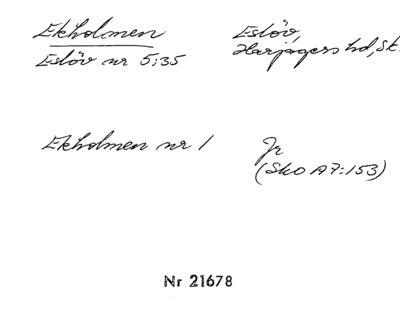 Ekholmen
Eslöv,
Eslöv nr 5:35
Harjagers hd, Sk.
Ekholmen nr 1
Jr
(Sko A7:153)
Nr 21678